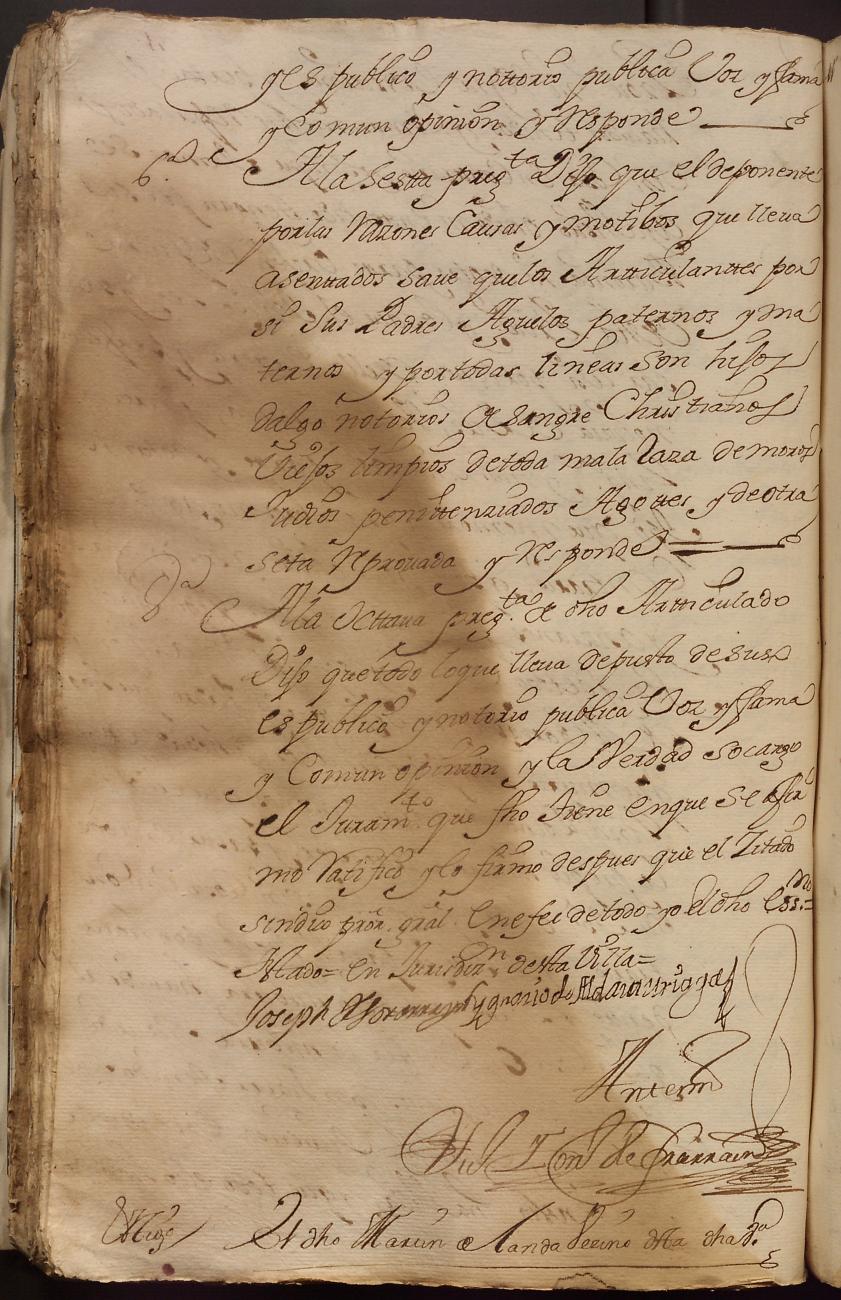 y es publico y nottorio publica Voz y ffama
y Comun opinion y responde
6.ª A la Sesta preg.ta Dijo que el deponente
por las Razones Causas y motibos que lleva
asenttados save que los Artticulanttes por
si Sus Padres Aguelos paternos y ma
ternos y por todas lineas Son hijos
dalgo notorios de Sangre Christianos
Viejos limpios de toda mala Raza de moros
Judios penittenziados Agottes y de otra
seta reprouada y responde
8.ª A la Octtaua preg.ta de dho Artticulado
Dijo que todo lo que lleua depuesto de suso
es publico y notorio publica Voz y ffama
y Comun opinion y la Verdad so cargo
el Juram.to que fho tiene en que se afir
mo Ratifico y lo firmo despues que el Zitado
sindico pror. gral. En fee de todo yo el dho Ess.no =
Ttado = en Jurisdiz.n de esta Villa =
Joseph de Ygnacio de Aldamurizaga
Antemi
de Ybarra
El dho Martin de Landa Vezino de esta dha V.ª